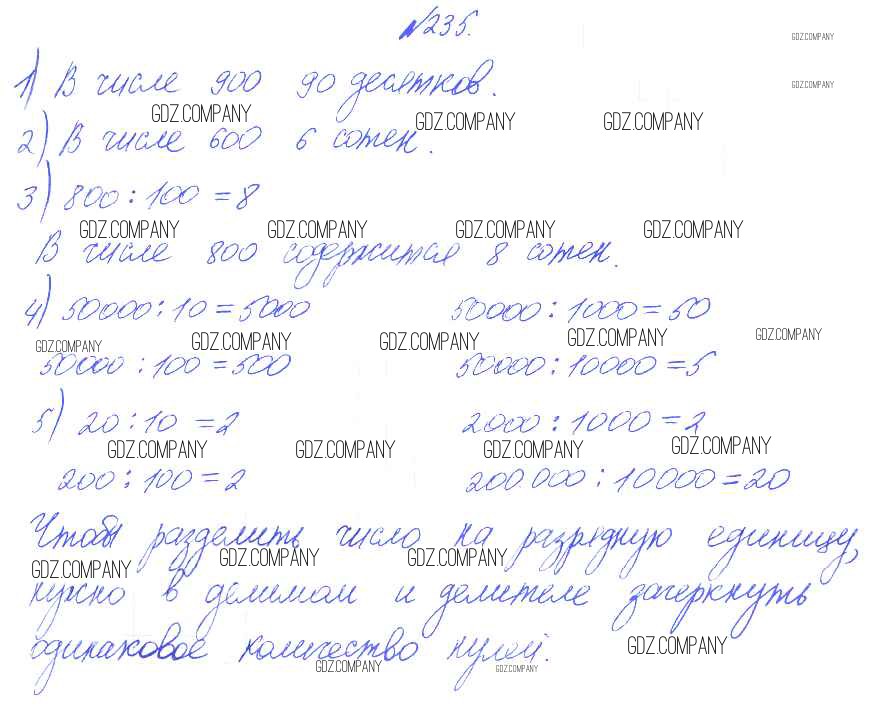 №235.
GDZ.COMPANY
1) В числе 900 90 десятков.
GDZ.COMPANY
GDZ.COMPANY GDZ.COMPANY GDZ.COMPANY
2) В числе 600 6 сотен.
3) 800 : 100 = 8
GDZ.COMPANY GDZ.COMPANY GDZ.COMPANY GDZ.COMPANY
В числе 800 содержится 8 сотен.
4) 50000 : 10 = 5000 50000 : 1000 = 50
GDZ.COMPANY GDZ.COMPANY GDZ.COMPANY GDZ.COMPANY GDZ.COMPANY
50000 : 100 = 500 50000 : 10000 = 5
5) 20 : 10 = 2 2000 : 1000 = 2
GDZ.COMPANY GDZ.COMPANY GDZ.COMPANY GDZ.COMPANY
200 : 100 = 2 200 000 : 10000 = 20
Чтобы разделить число на разрядную единицу,
GDZ.COMPANY GDZ.COMPANY GDZ.COMPANY
нужно в делимом и делителе зачеркнуть
одинаковое количество нулей.
GDZ.COMPANY
GDZ.COMPANY GDZ.COMPANY